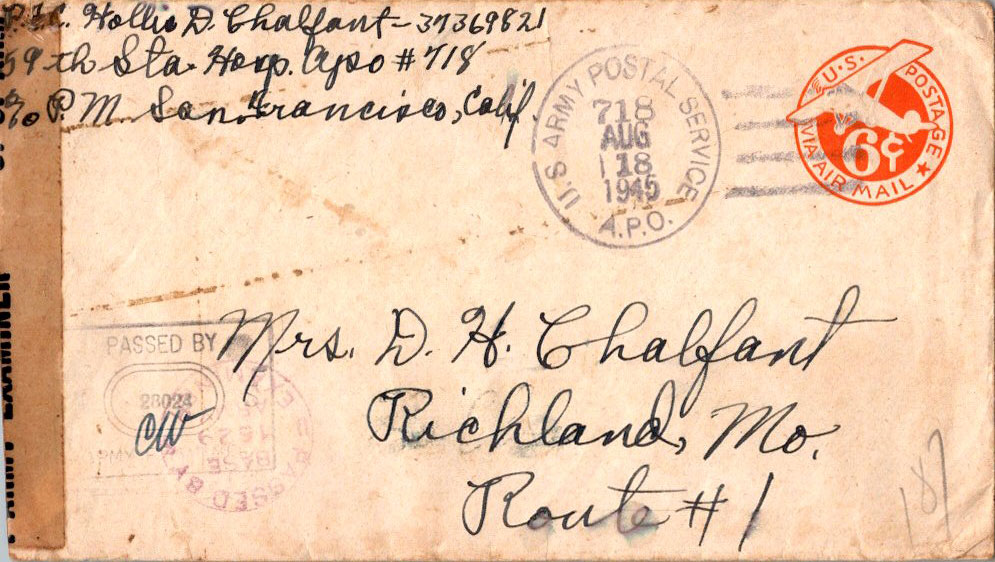 Pfc. Hollis D. Chalfant - 37369821
59th Sta. Hosp. Apo # 718
c/o P.M. San Francisco, Calif.
U.S. ARMY POSTAL SERVICE
718
AUG
18
1945
A.P.O.
U.S. POSTAGE
6¢
VIA AIR MAIL
ARMY EXAMINER
PASSED BY
28024
CW
Mrs. D. H. Chalfant
Richland, Mo.
Route # 1
PASSED BY
BASE
1629
187